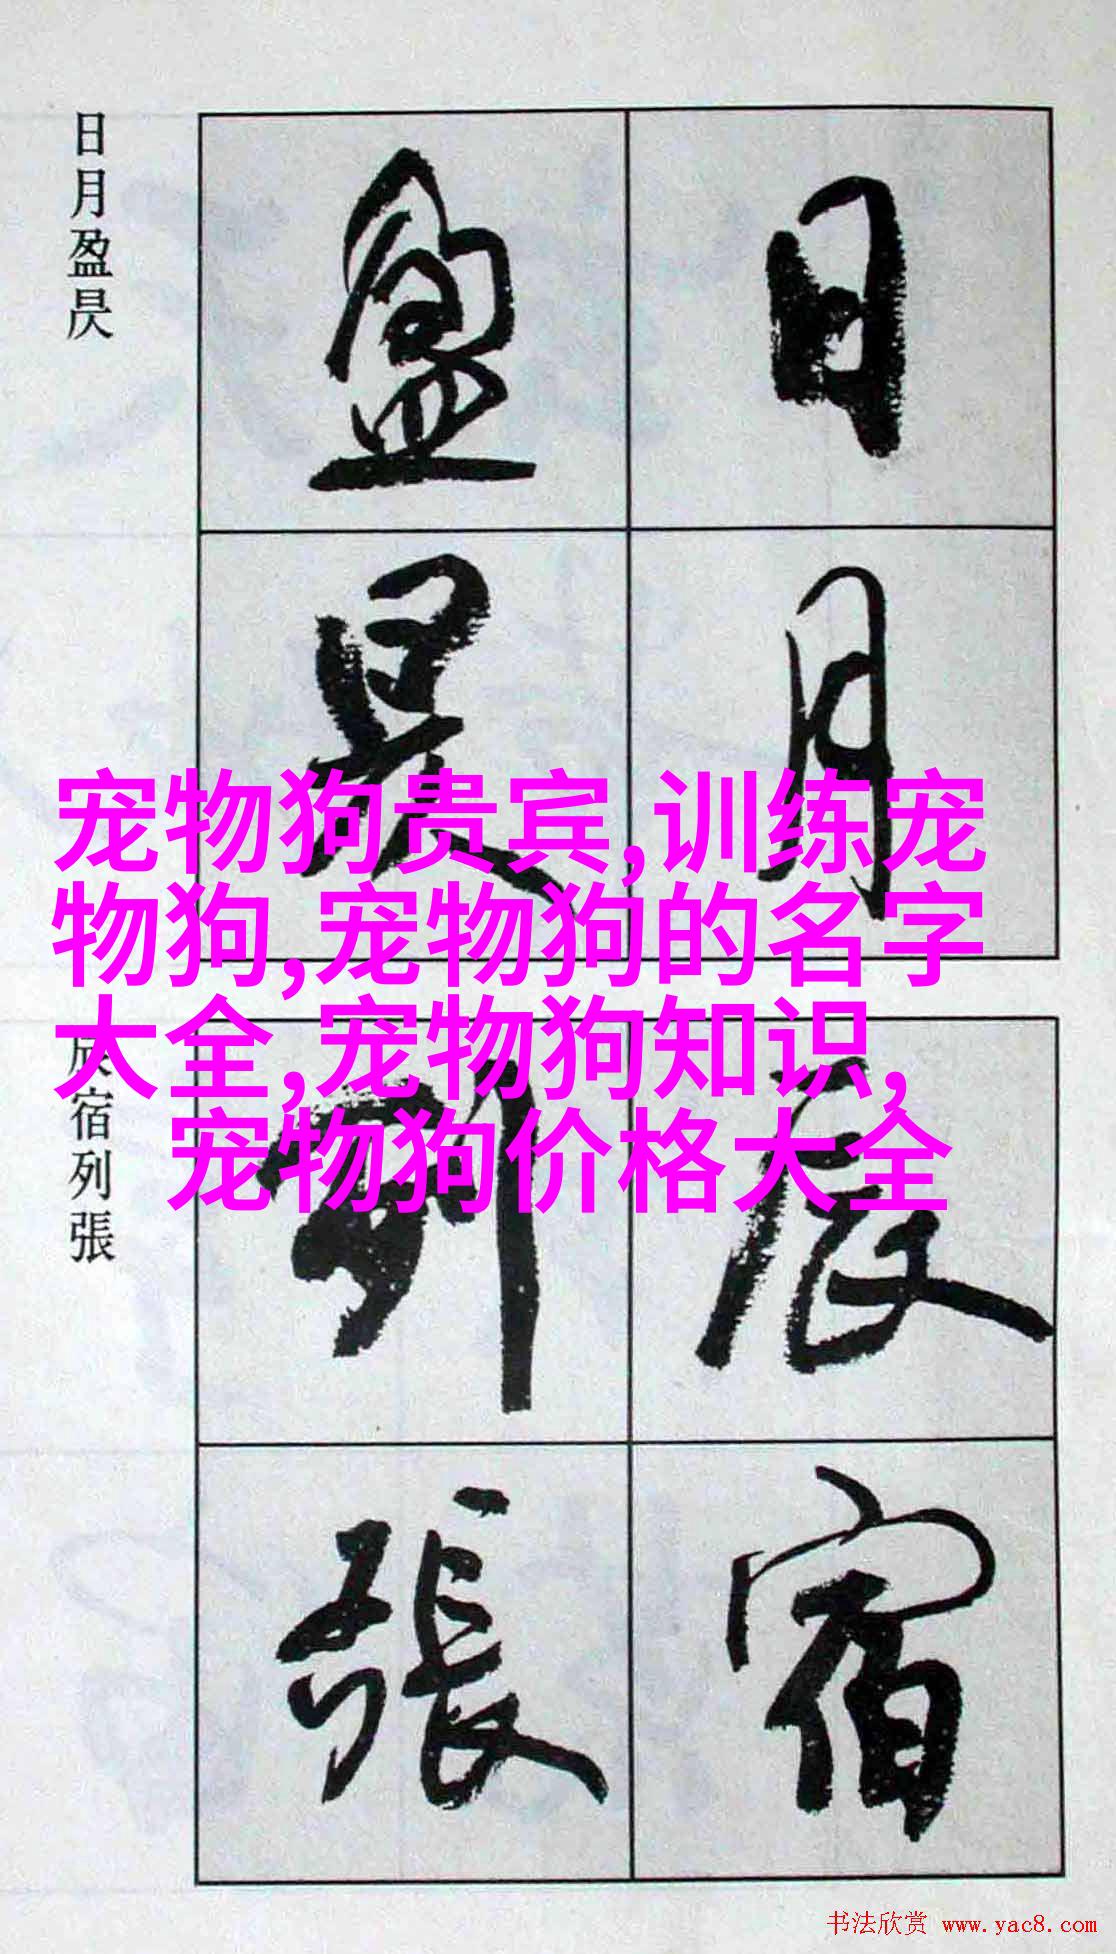 日月盈昃
日
月
盈
昃
宠物狗贵宾,训练宠
物狗,宠物狗的名字
大全,宠物狗知识,
宠物狗价格大全
辰宿列張
辰
宿
列
張
书法欣赏 www.yac8.com